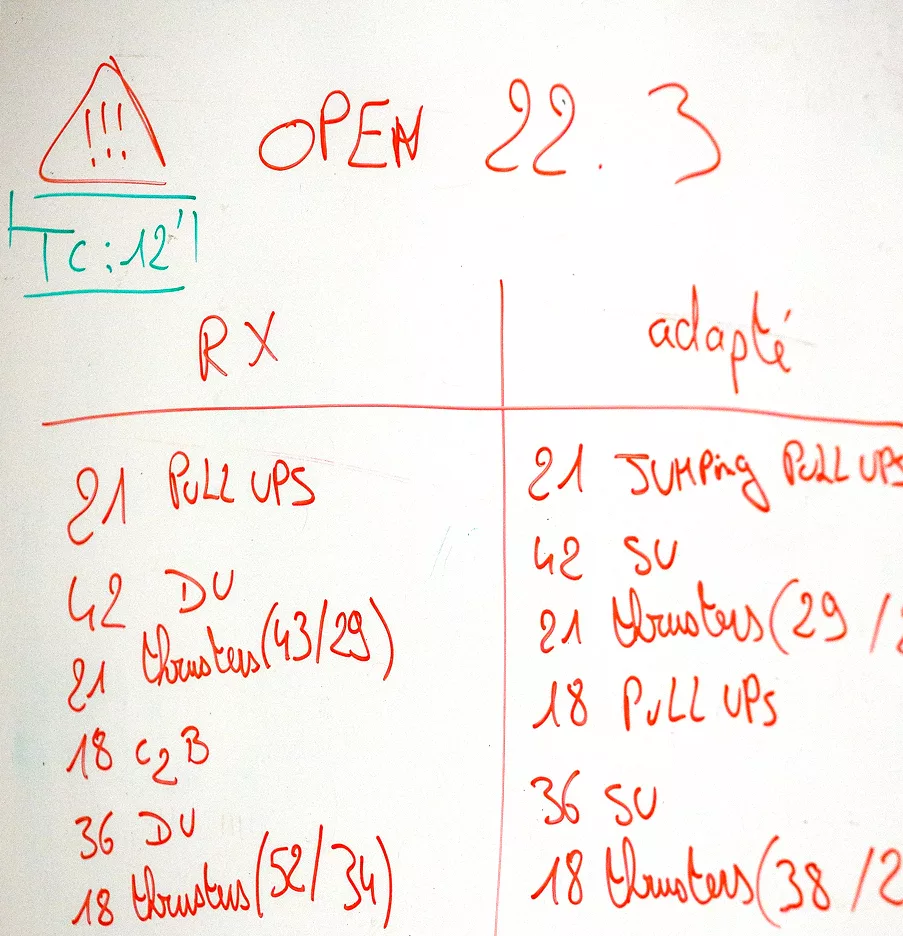 !!!
OPEN 22.3
TC: 12'
RX
21 PULL UPS
42 DU
21 thrusters (43/29)
18 C2B
36 DU
18 thrusters (52/34)
adapté
21 JUMPing PULL UPS
42 SU
21 thrusters (29 /2
18 PULL UPS
36 SU
18 thrusters (38 /2